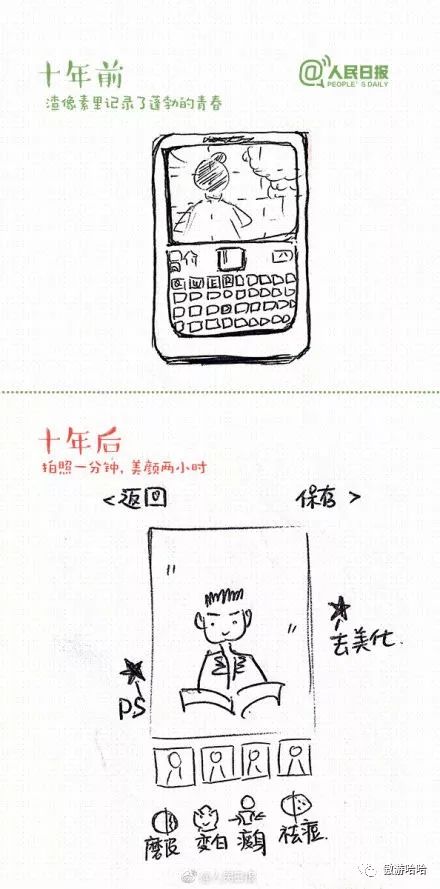 十年前
@人民日报
PEOPLE'S DAILY
渣像素里记录了蓬勃的青春
Q W E R
十年后
拍照一分钟,美颜两小时
<返回
保存>
去美化.
PS
磨皮 变白 瘦身 祛痘.
@人民日报
傲游哈哈